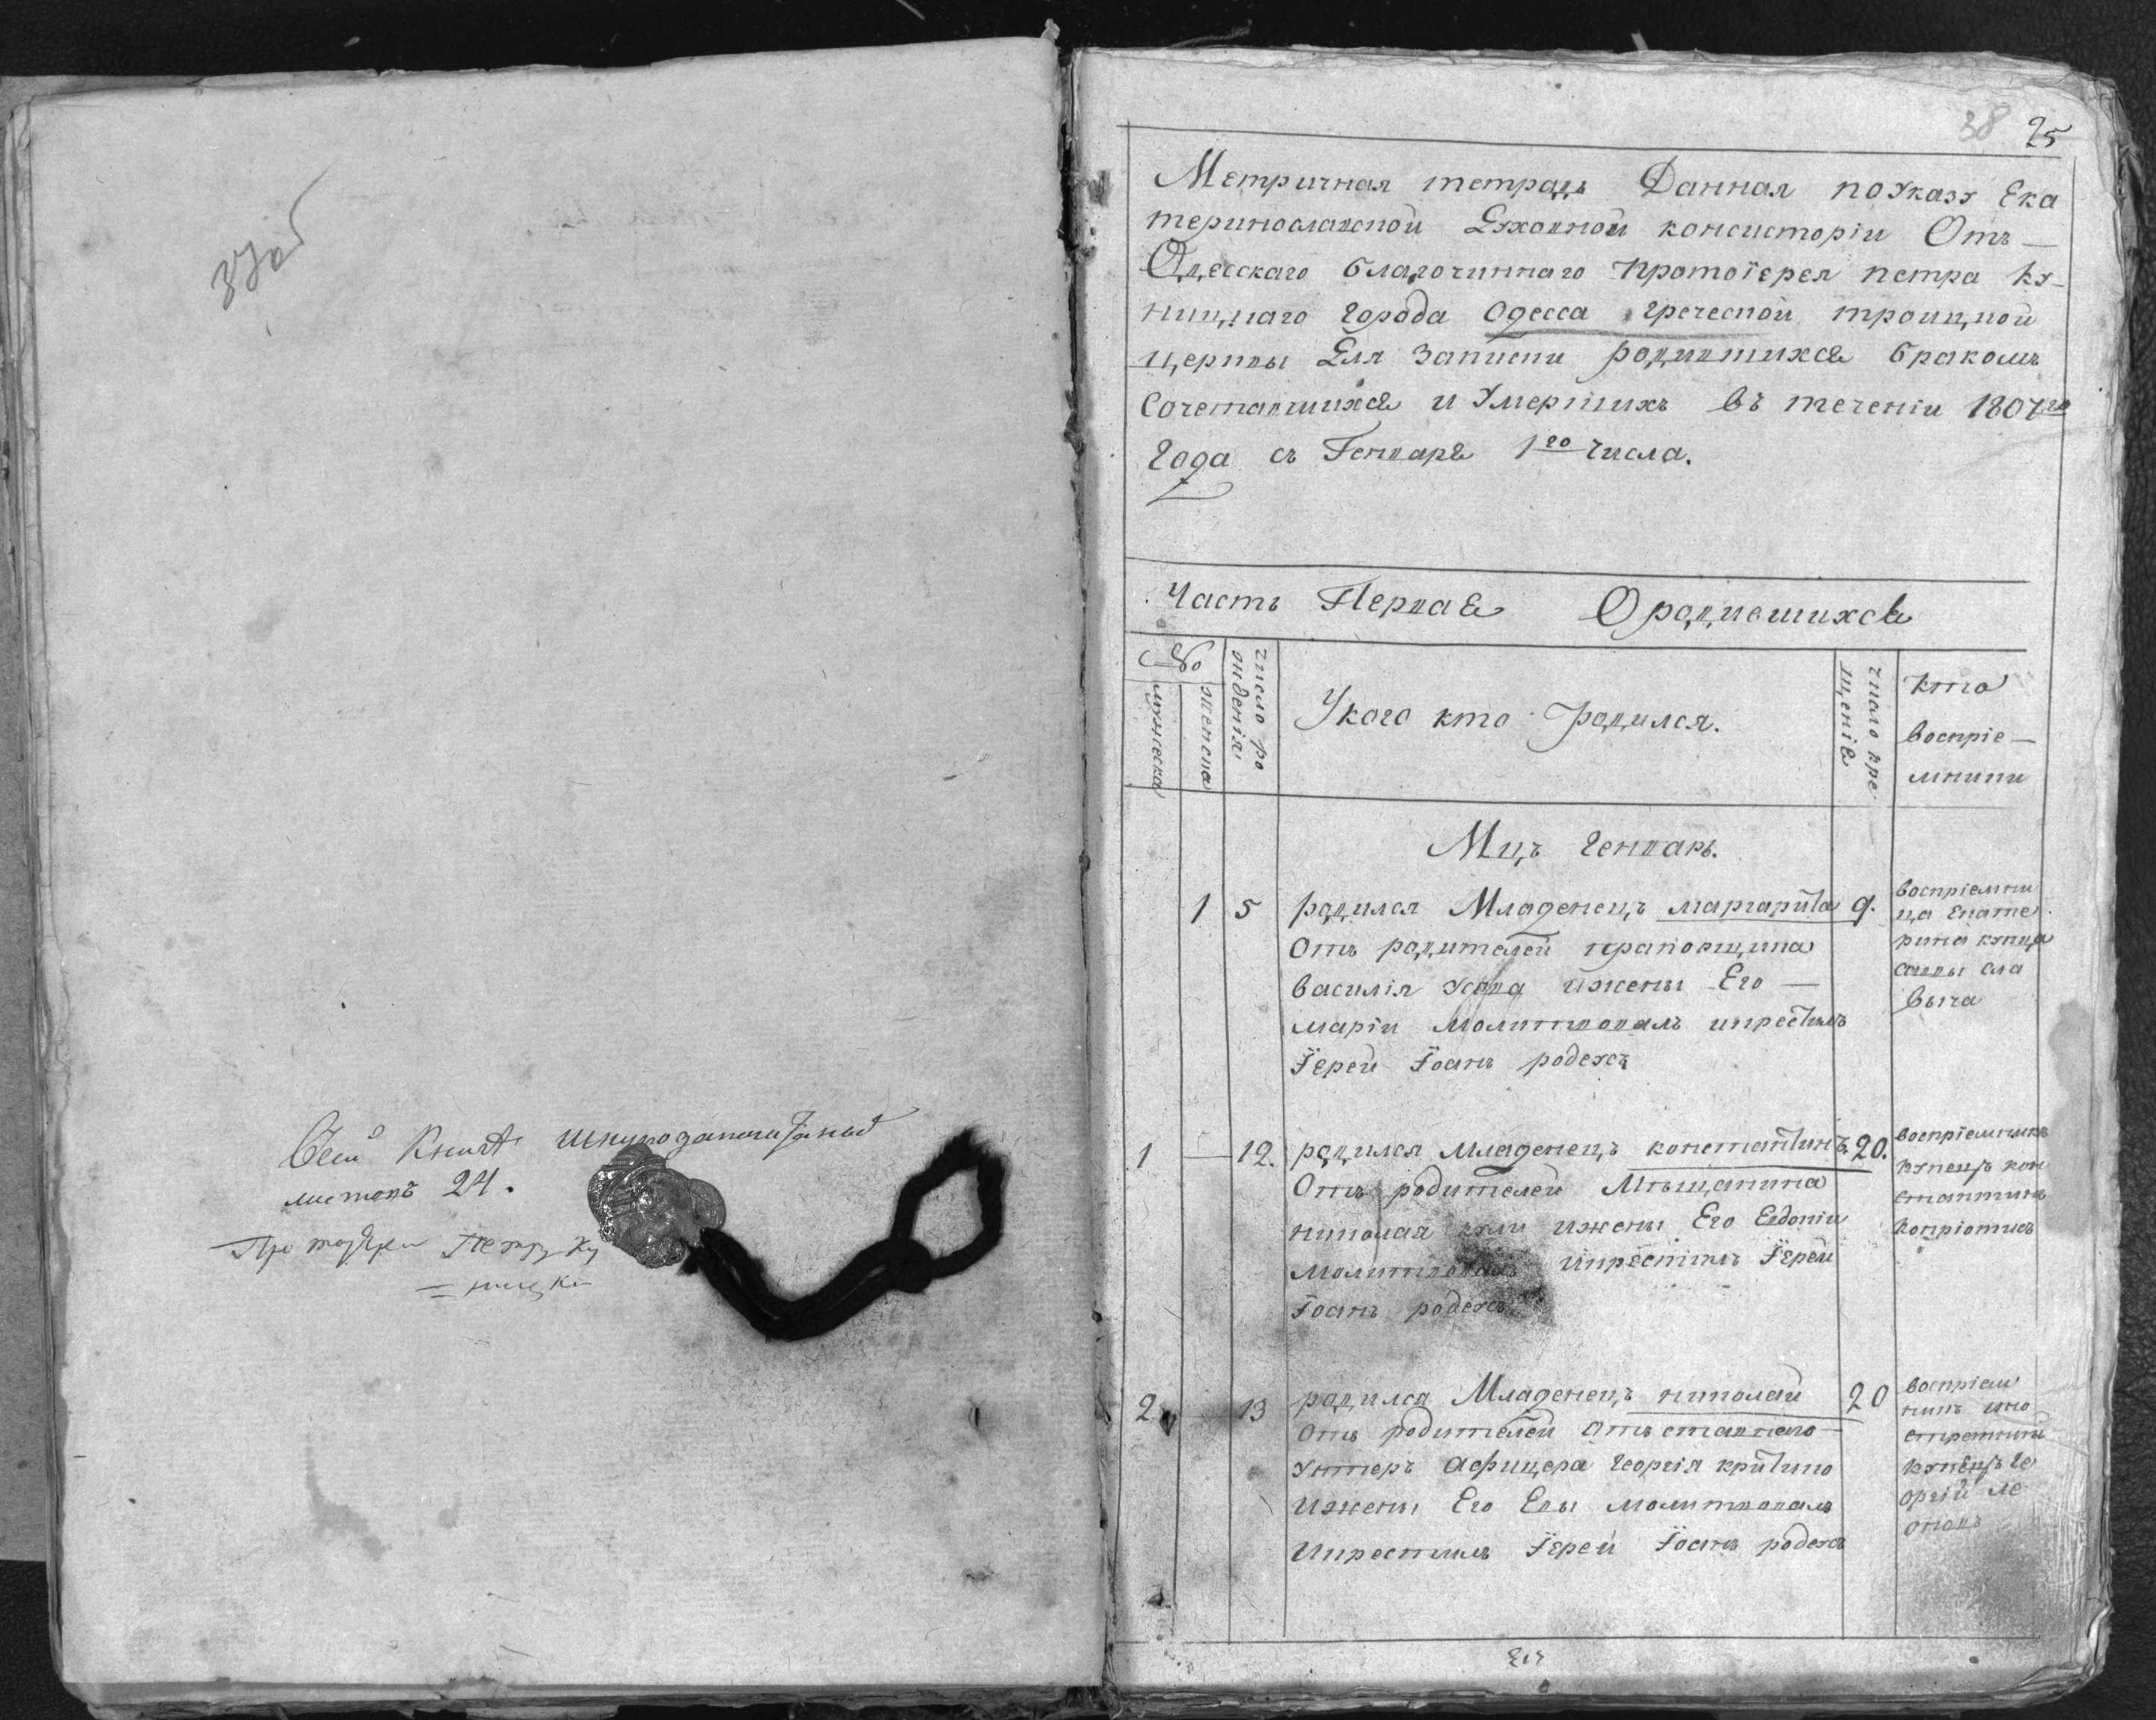 37об
Сей Книги шнурозапечатаной
листовъ 24.
Протоіерей Петръ Ку
=ницкій
38 25
Метричная тетрадь Данная поуказу Ека
теринославской Духовной консисторіи Отъ —
Одесскаго благочиннаго протоіерея петра ку-
ницкаго города Одесса греческой троицкой
церквы Для записки родившихся бракомъ
сочетавшихся и умершихъ въ теченіи 1807го
года съ Генваря 1го числа.
Часть Первая О родившихся
№
мужеска
женска
число ро
жденія
У кого кто родился.
число кре
щенія
кто
воспріе—
мники
Мцъ генварь.
1 5 родился Младенецъ маргарита 9.
отъ родителей прапорщика
василія ижены Его —
маріи молитвовалъ икрестилъ
Іерей Іоанъ родосъ
воспріемни
ца екате
рина купца
савы сла
выча
1 — 12. родился младенецъ константинъ 20.
Отъ родителей Мѣщанина
николая ижены Его Евдокіи
молитвовалъ икрестилъ Іерей
Іоанъ родосъ
воспріемникъ
купецъ кон
стантинъ
капріотисъ
2. 13 родился Младенецъ николай 20
отъ родителей отъставнаго
унтеръ афицера георгія критико
ижены Его Евы молитвовалъ
икрестилъ Іерей Іоанъ родосъ
воспріем
никъ ино
странный
купецъ ге
оргій ле